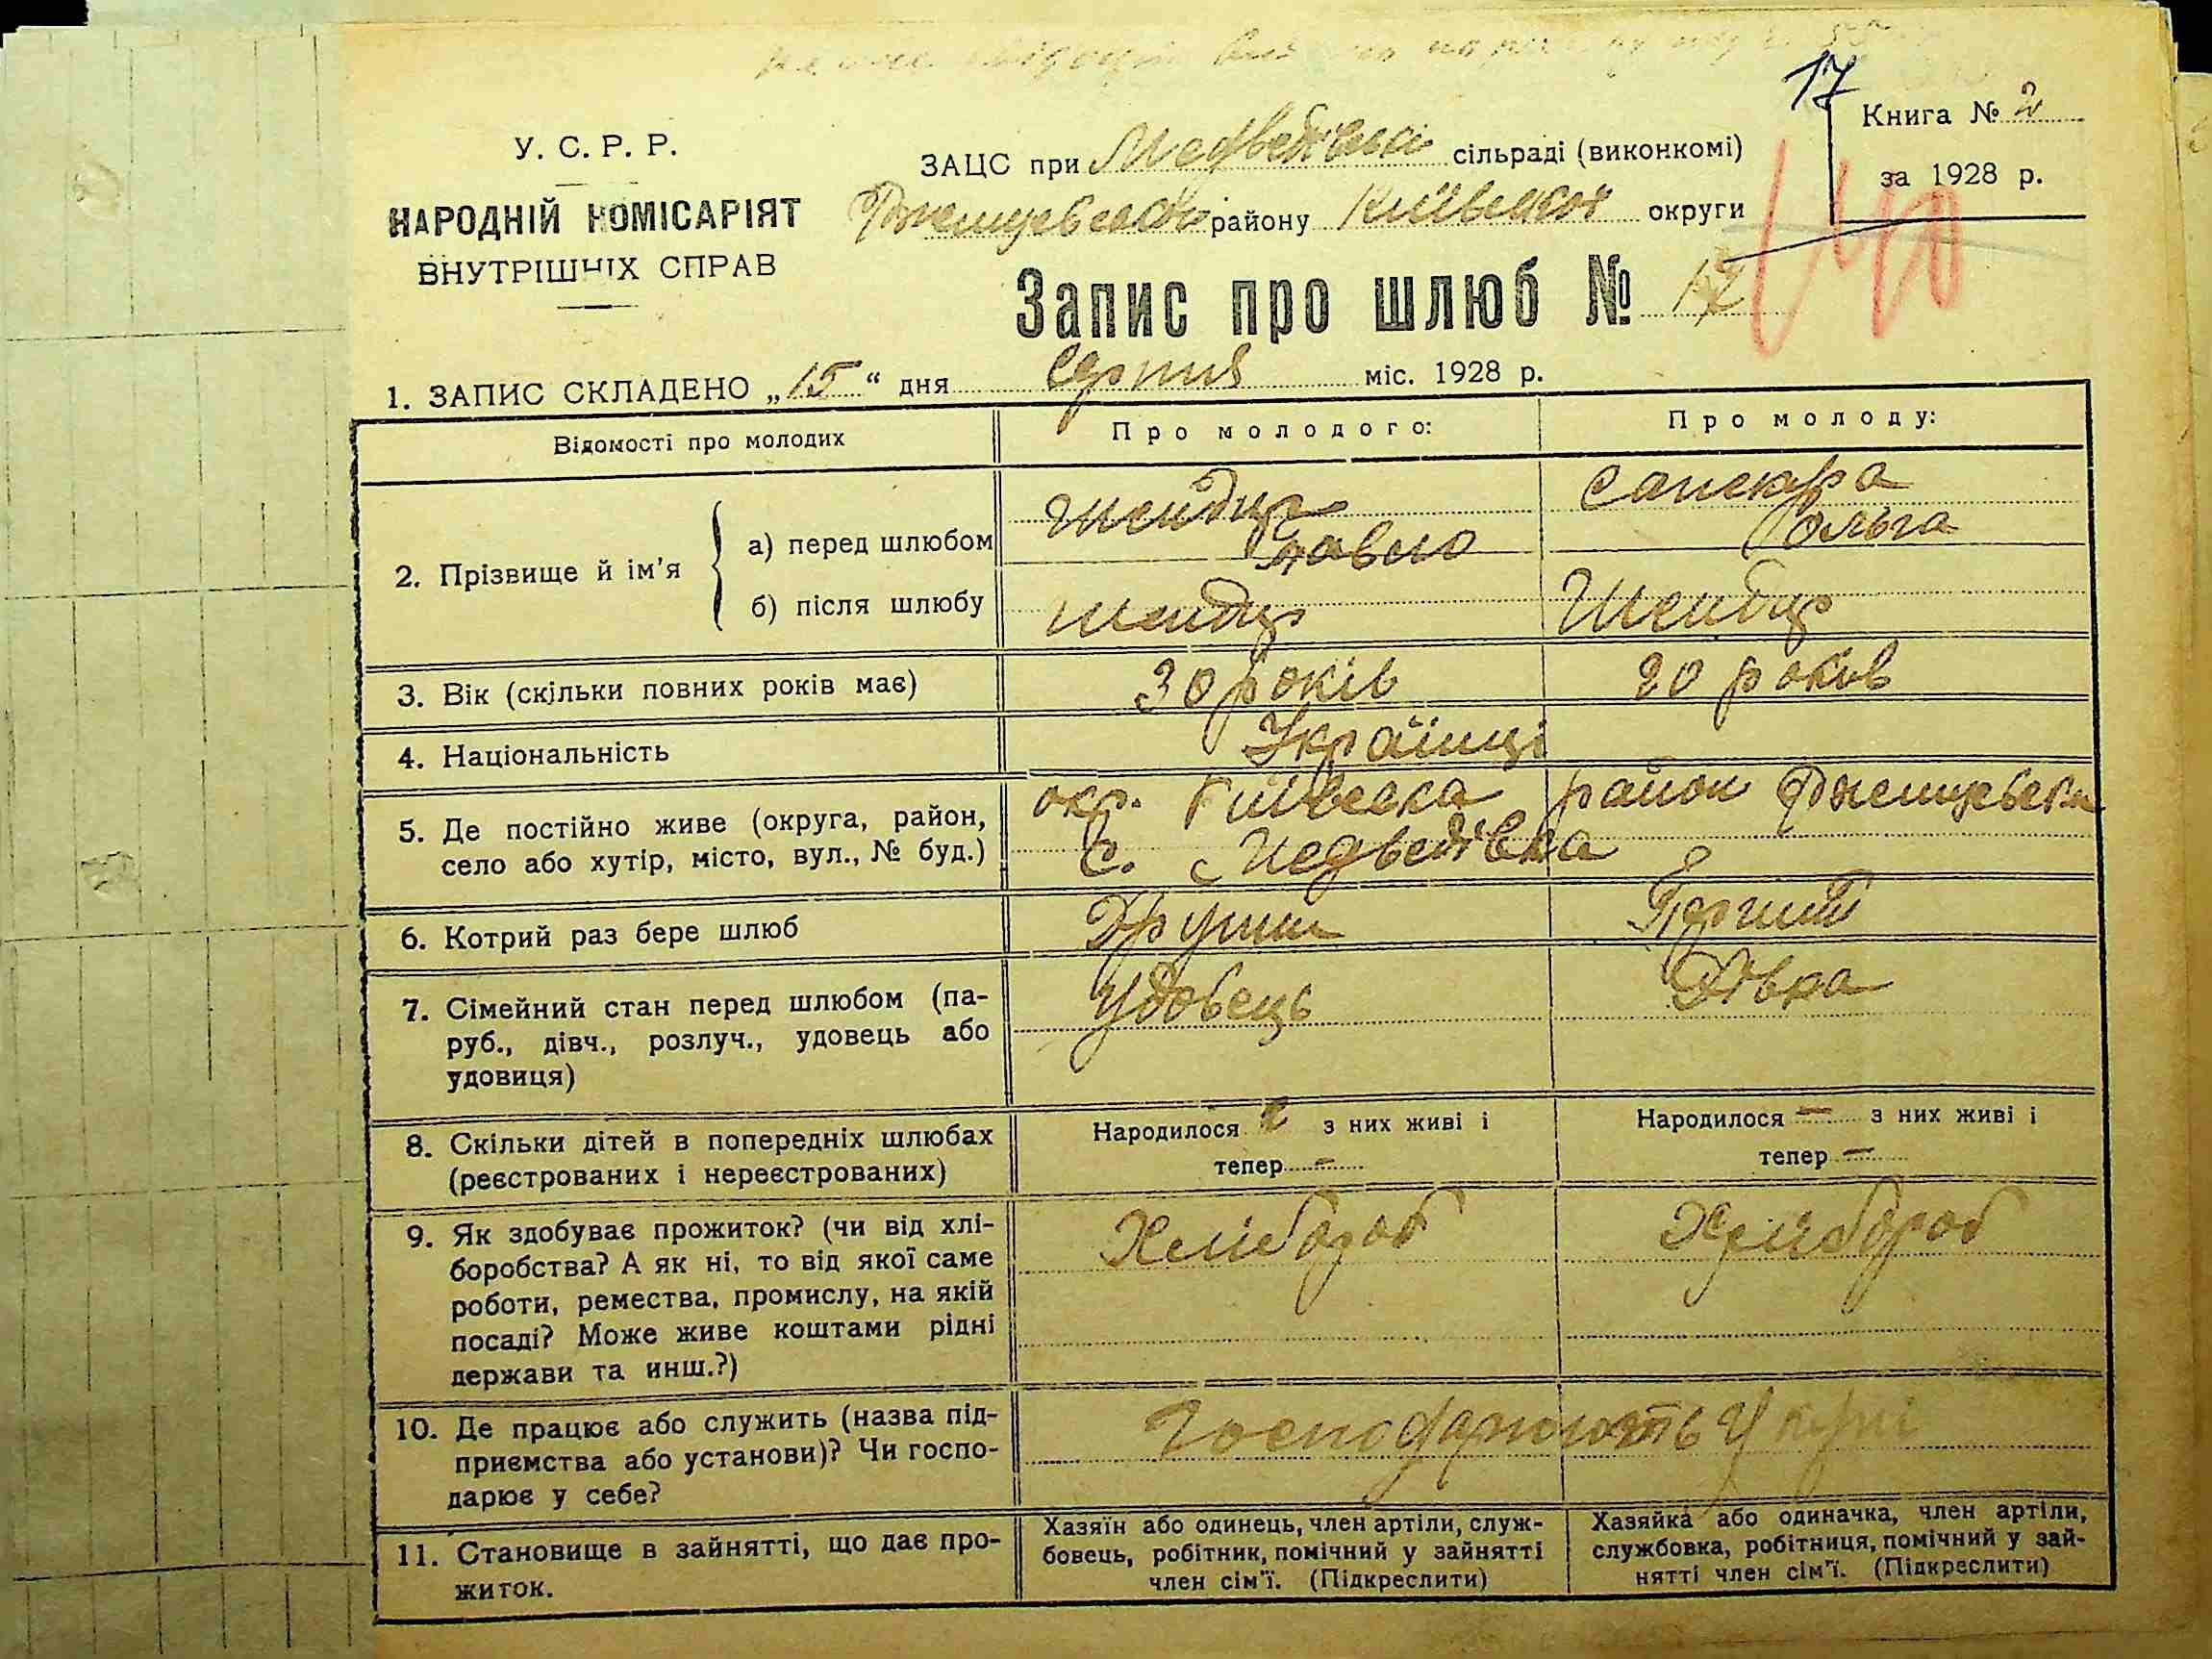 17
Книга № 2
за 1928 р.
У. С. Р. Р.
НАРОДНІЙ КОМІСАРІЯТ
ВНУТРІШНІХ СПРАВ
ЗАЦС при Медведівські сільраді (виконкомі)
району Київської округи
Запис про шлюб № 17
140
1. ЗАПИС СКЛАДЕНО „15“ дня Серпня міс. 1928 р.
Відомості про молодих
Про молодого:
Про молоду:
2. Прізвище й ім'я
а) перед шлюбом
Шендир
Павло
Ольга
б) після шлюбу
Шендир
Шендир
3. Вік (скільки повних років має)
30 років
20 років
4. Національність
Українці
5. Де постійно живе (округа, район,
село або хутір, місто, вул., № буд.)
окр. Київська район
с. Медведівка
6. Котрий раз бере шлюб
Другий
Перший
7. Сімейний стан перед шлюбом (па-
руб., дівч., розлуч., удовець або
удовиця)
Удовець
Дівка
8. Скільки дітей в попередніх шлюбах
(реєстрованих і нереєстрованих)
Народилося з них живі і
тепер –
Народилося – з них живі і
тепер –
9. Як здобуває прожиток? (чи від хлі-
боробства? А як ні, то від якої саме
роботи, ремества, промислу, на якій
посаді? Може живе коштами рідні
держави та инш.?)
Хлібороб
Хлібороб
10. Де працює або служить (назва під-
приємства або установи)? Чи госпо-
дарює у себе?
Господарюють у
11. Становище в зайнятті, що дає про-
житок.
Хазяїн або одинець, член артіли, служ-
бовець, робітник, помічний у зайнятті
член сім'ї. (Підкреслити)
Хазяйка або одиначка, член артіли,
службовка, робітниця, помічний у зай-
нятті член сім'ї. (Підкреслити)